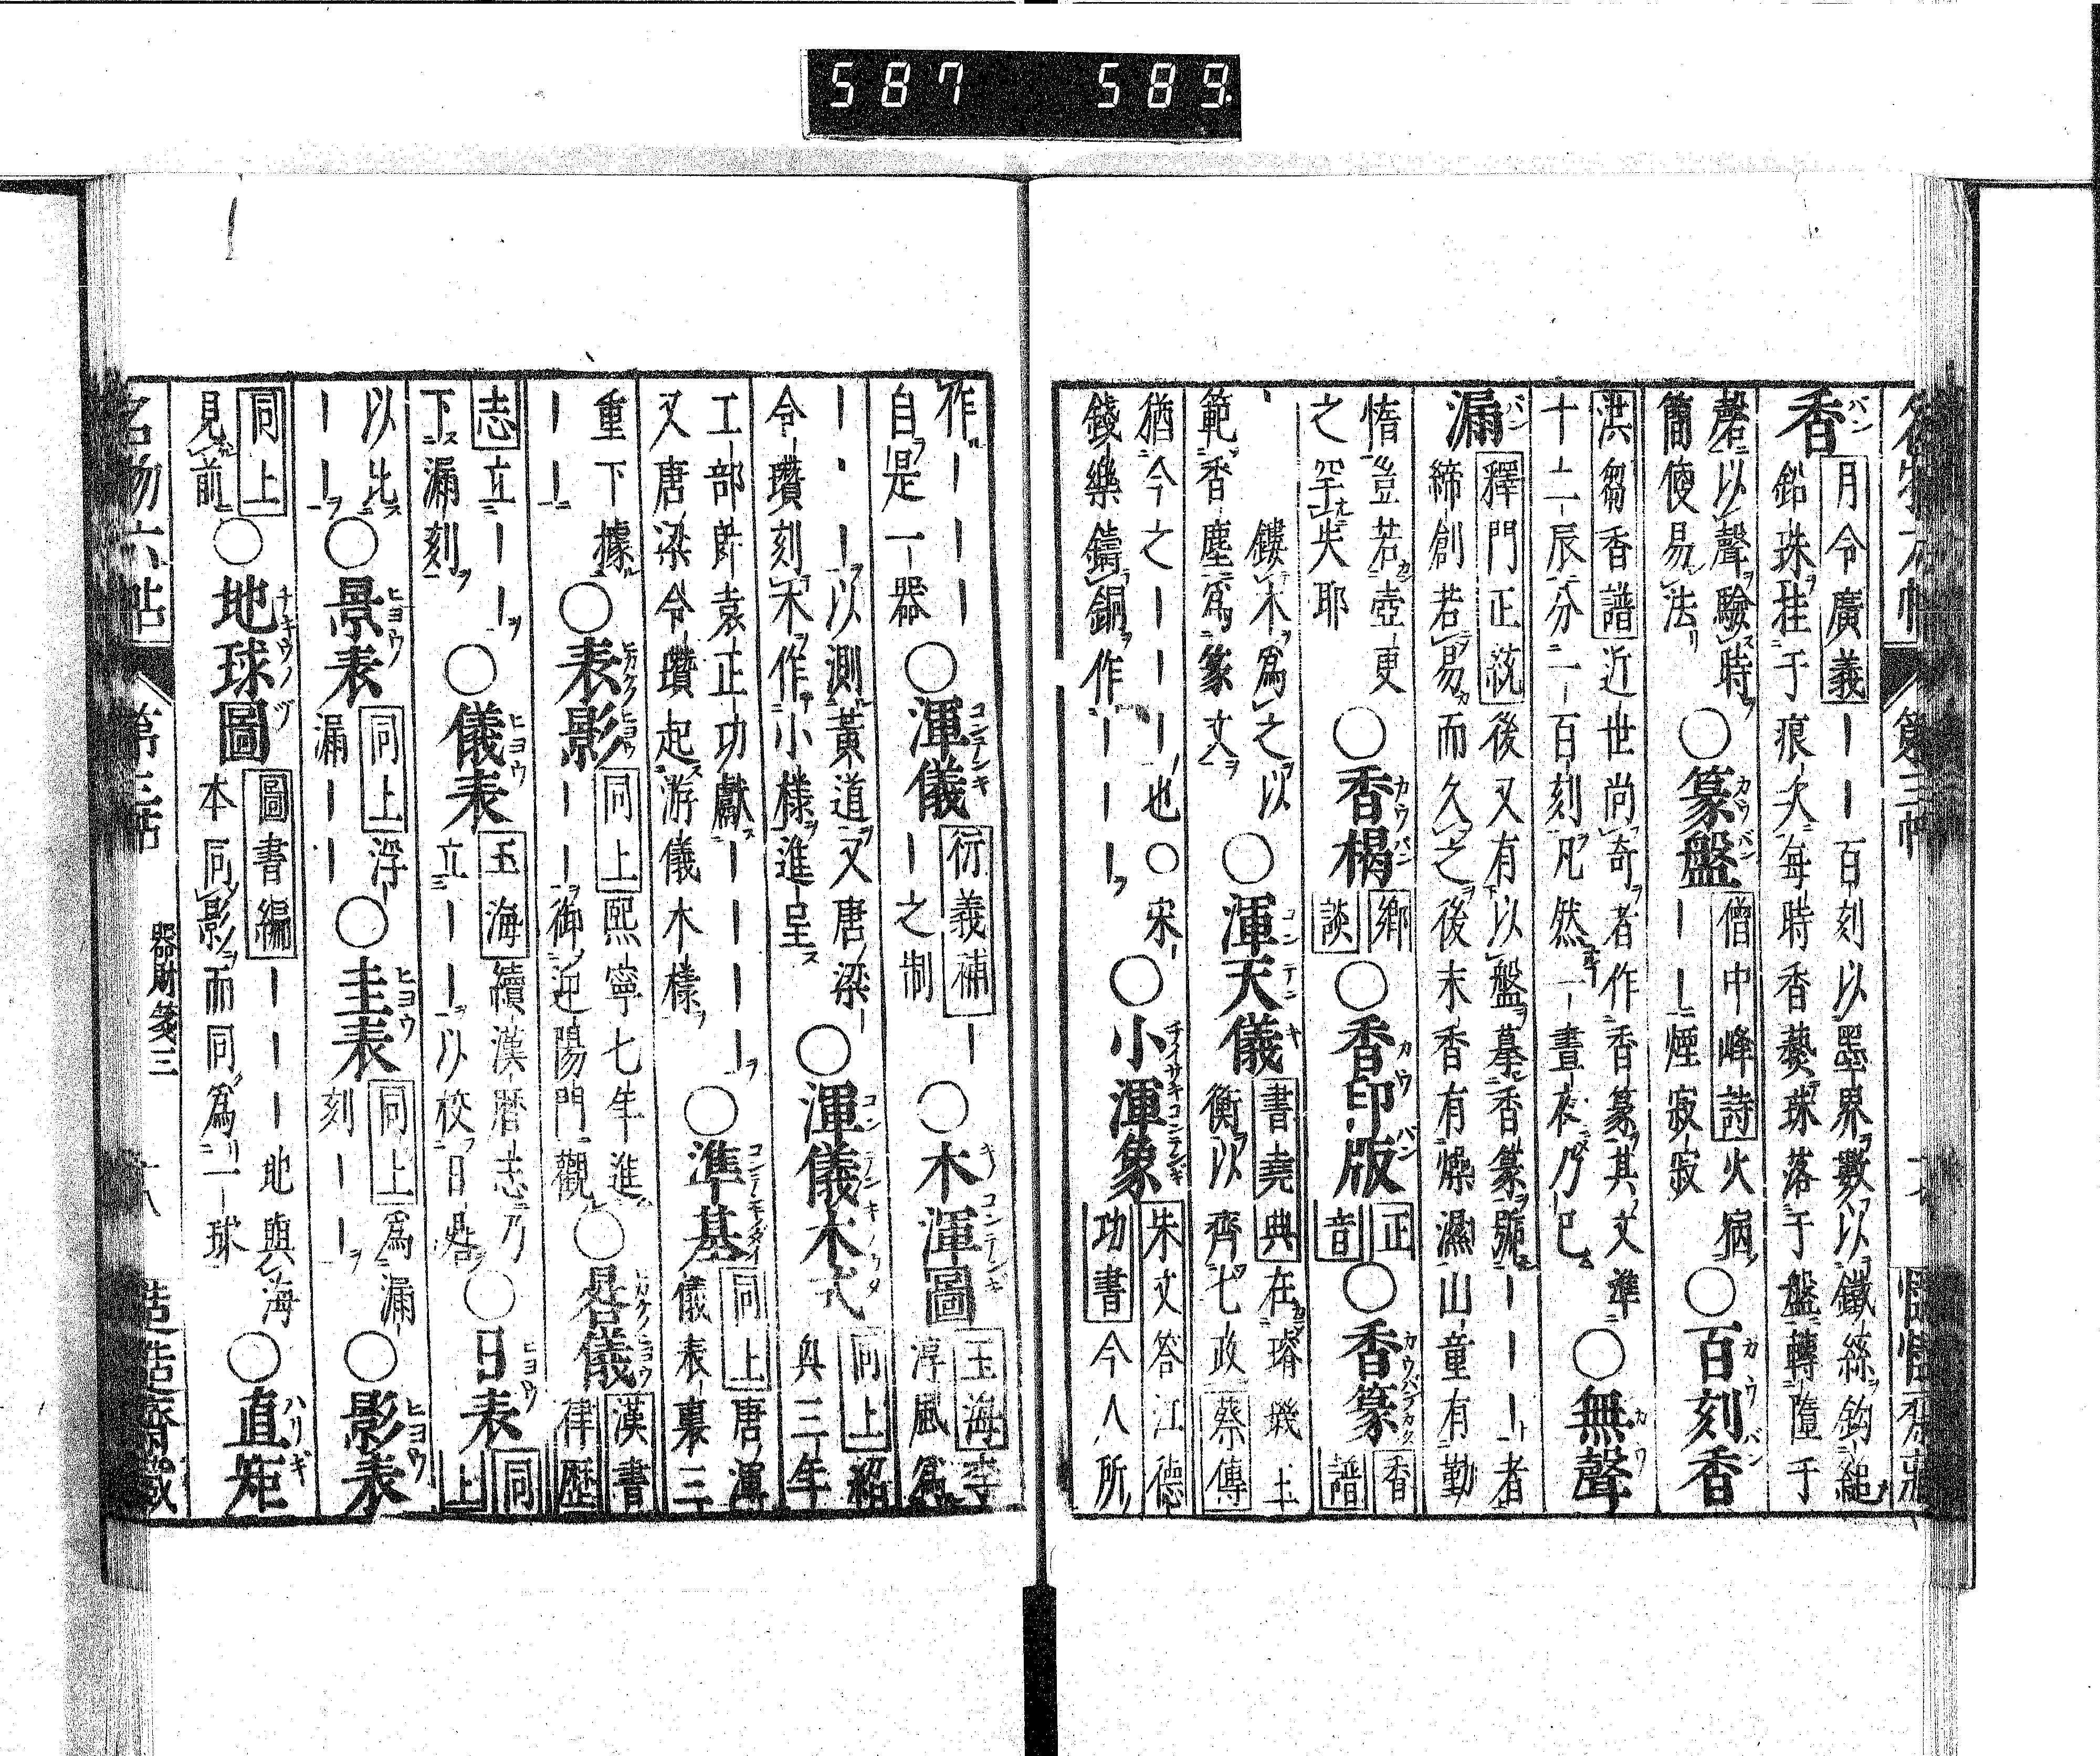 587 589
第三帖
香 月令廣義 ーー百刻以墨界數以鐵絲鈎縋
鉛珠挂于痕次每時香爇珠落于盤轉墮于
磬以聲驗時
簡便易法 ○篆盤 僧中峰詩 火病
ーーー煙寂寂 ○百刻香
洪芻香譜 近世尚奇者作香篆其文準
十二辰分一百刻凡然一晝夜乃已 ○無聲
漏 釋門正統 後又有以盤摹香篆號ーーー者
締創若易而久之後末香有燥濕山童有勤
惰豈若壺更
之罕失耶 ○香楬 鄉談 ○香印版 正音 ○香篆 香譜
鏤木爲之以
範香塵爲篆文 ○渾天儀 書堯典 在璿璣玉
衡以齊七政 蔡傳
猶今之ーーー也○宋
錢樂鑄銅作ーーー ○小渾象 朱文答江德
功書 今人所
作ーーーー
自是一器 ○渾儀 衍義補 ー
ー之制 ○木渾圖 玉海 李
淳風爲
ー・ー以測黃道又唐梁
令瓚刻木作小樣進呈 ○渾儀木式 同上 紹
興三年
工部郎袁正功獻ーーーー
又唐梁令瓚起游儀木樣 ○準基 同上 唐渾
儀表裏三
重下據
ーー ○表影 同上 熙寧七年進
ーーー御迎陽門觀 ○晷儀 漢書
律歷
志 立ーー
下漏刻 ○儀表 玉海 續漢曆志乃
立ーー以校日晷 ○日表 同上
以比
ーー ○景表 同上 浮
漏ーー ○圭表 同上 爲漏
刻ーー ○影表
同上
見前 ○地球圖 圖書編 ーーー地與海
本同影而同爲一球 ○直矩
名物六帖 第三帖 器財箋三